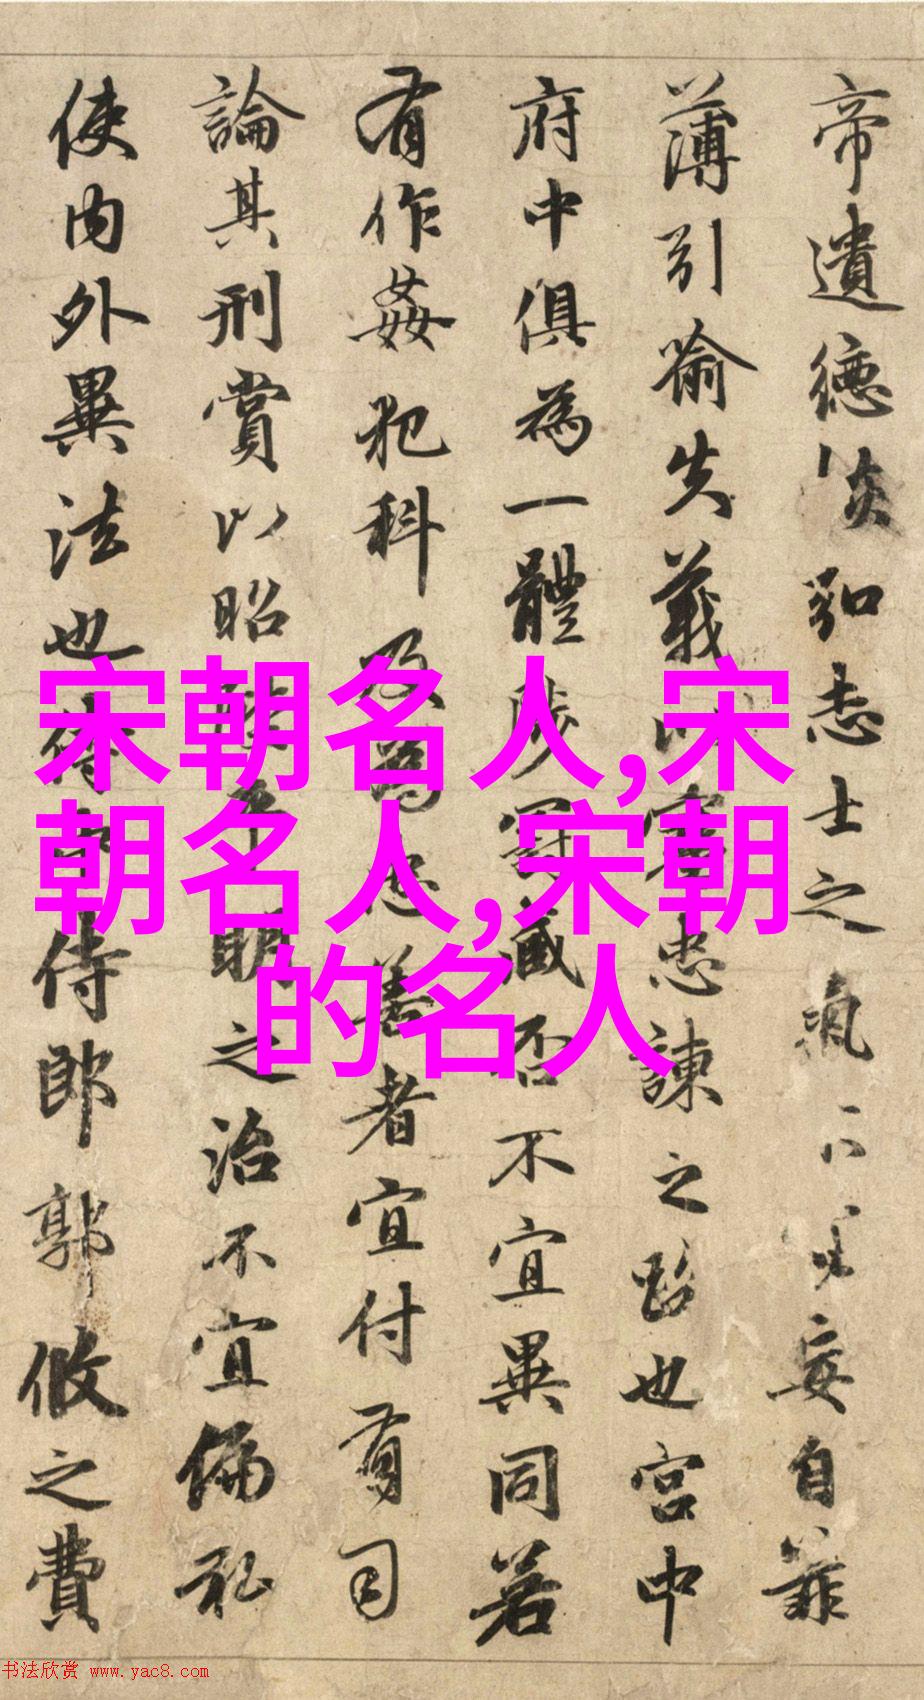 帝遺德恢弘志士之氣不妄自菲
薄引喻失義以塞忠諫之路也宮中
府中俱為一體陟罰臧否不宜異同若
有作姦犯科及為忠善者宜付有司
論其刑賞以昭平明之治不宜偏私
使內外異法也侍中侍郎郭攸之費
宋朝名人,宋
朝名人,宋朝
的名人
书法欣赏 www.yac8.com